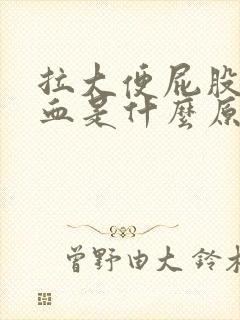 拉大便屁股
血是什麼原
曾野由大 鈴木